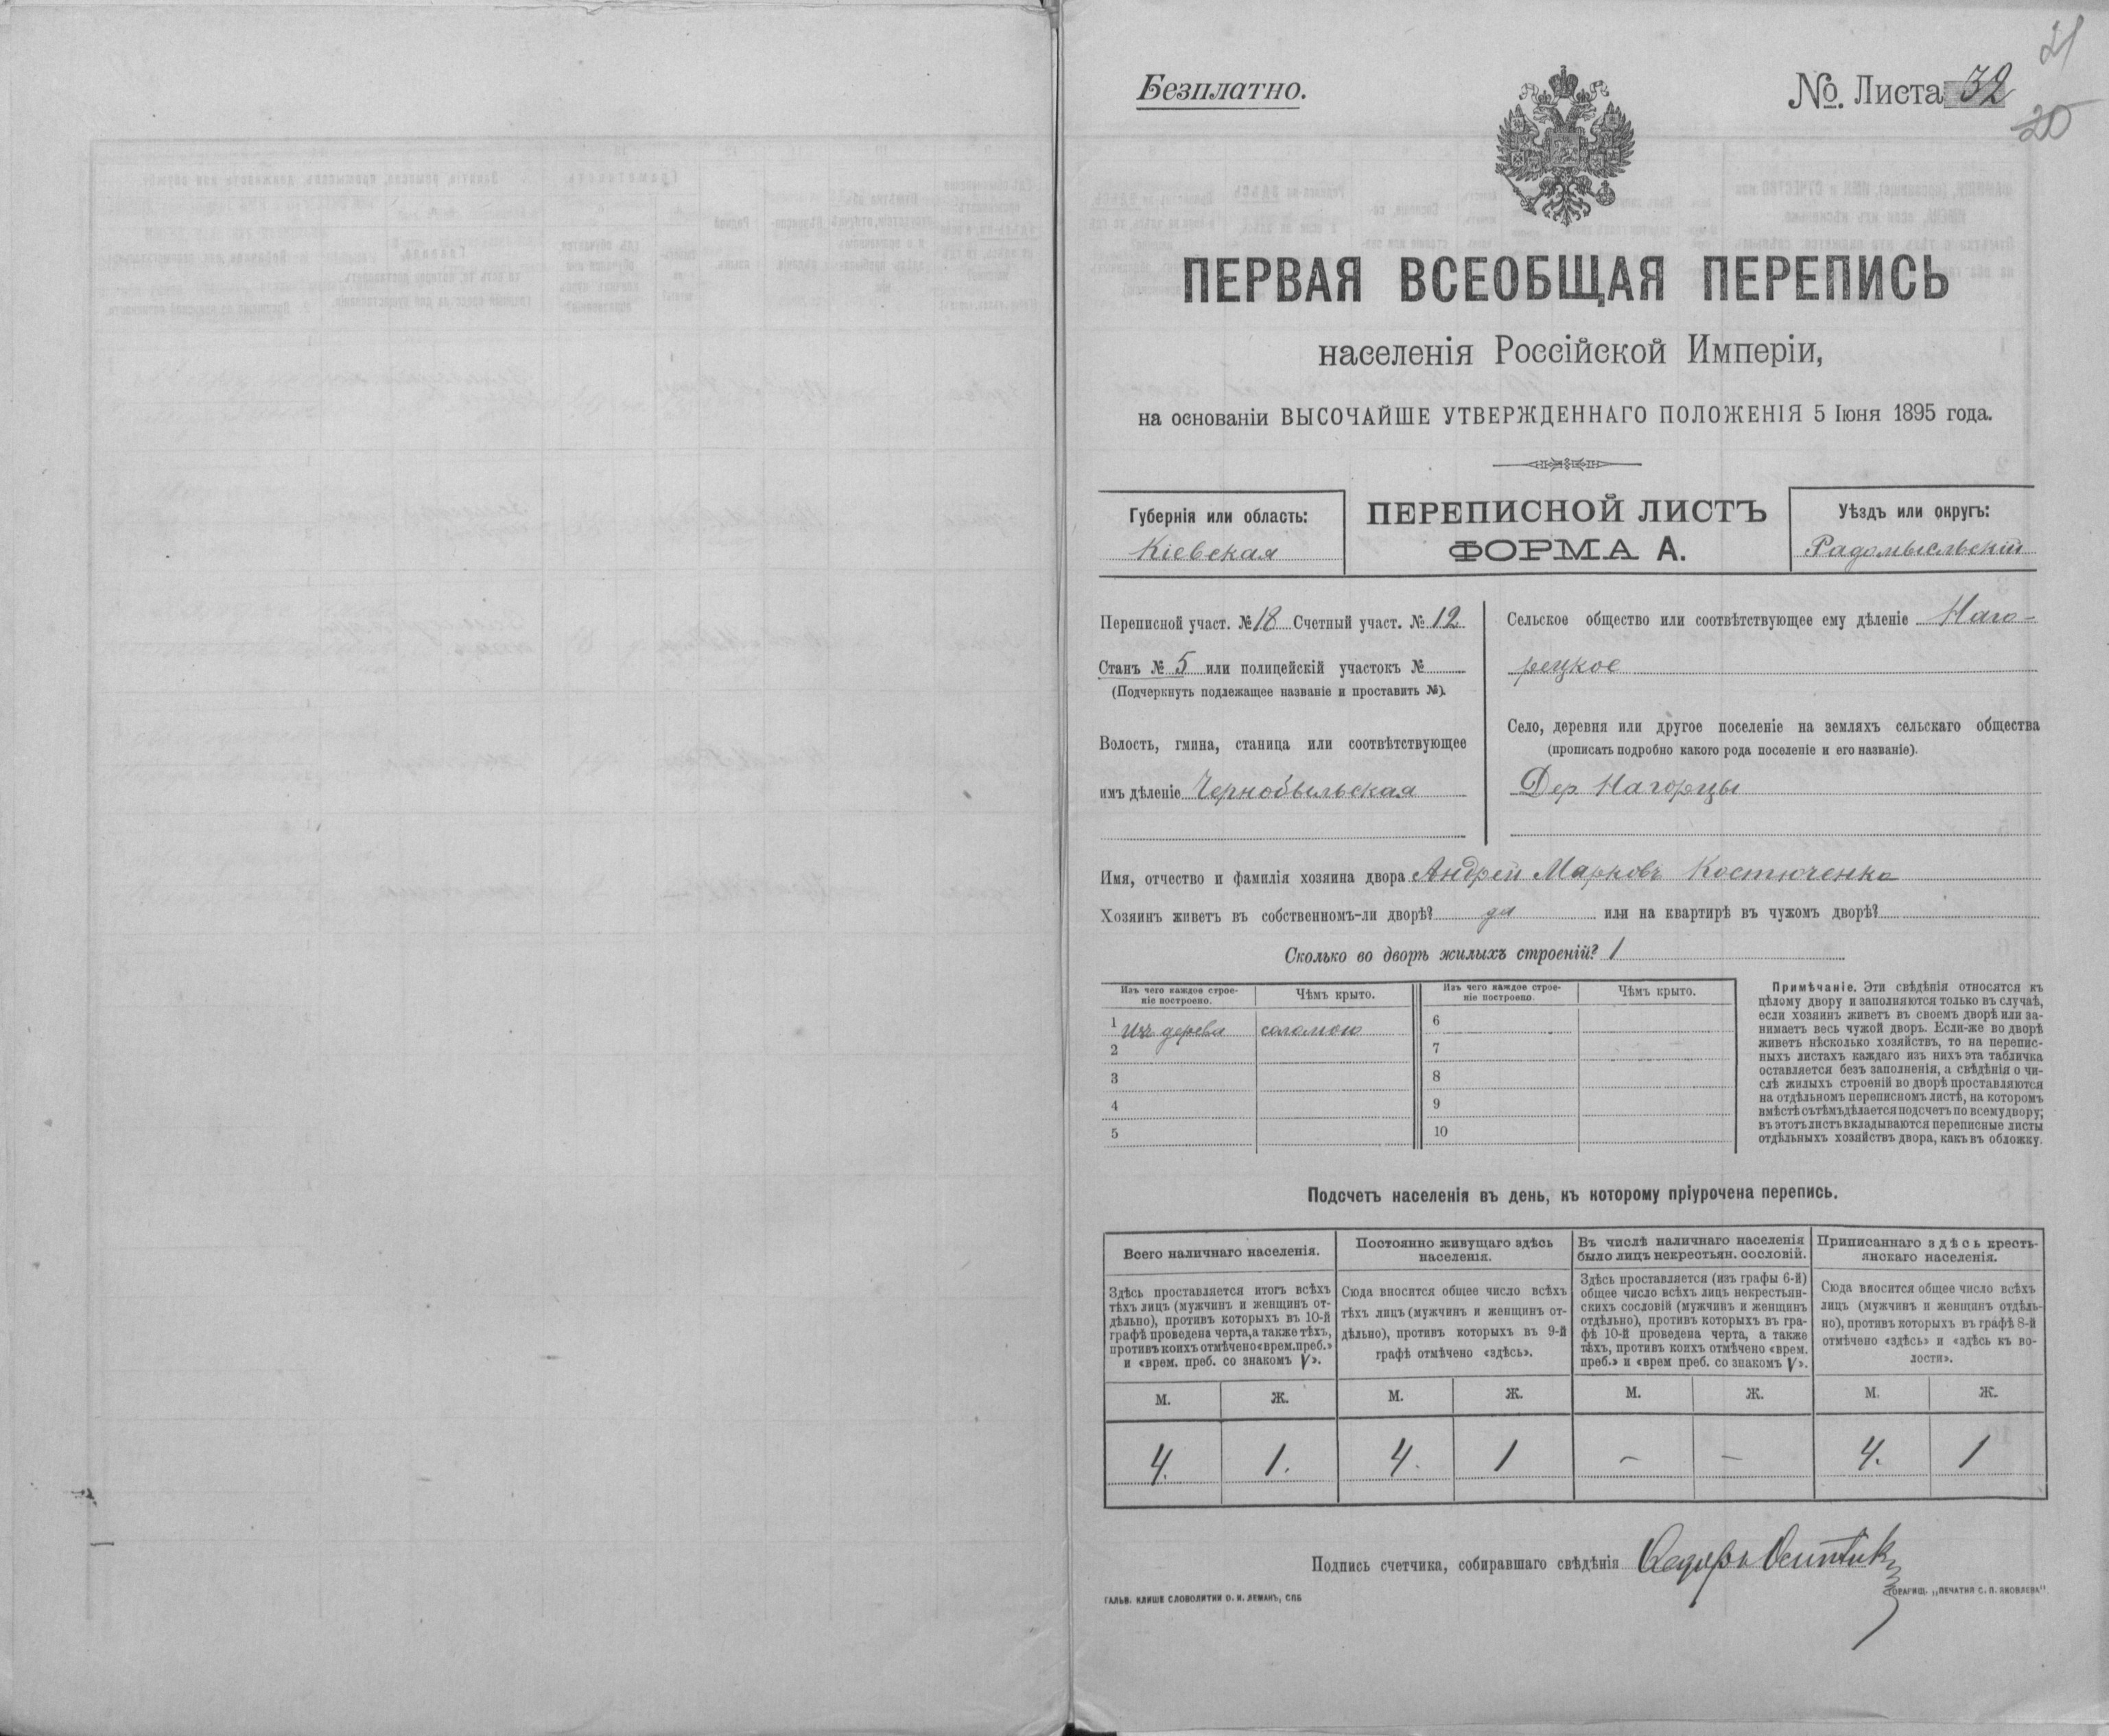 21
Безплатно.
№. Листа 32
20
ПЕРВАЯ ВСЕОБЩАЯ ПЕРЕПИСЬ
населенія Россійской Имперіи,
на основаніи ВЫСОЧАЙШЕ УТВЕРЖДЕННАГО ПОЛОЖЕНІЯ 5 Іюня 1895 года.
Губернія или область:
Кіевская
ПЕРЕПИСНОЙ ЛИСТЪ
ФОРМА А.
Уѣздъ или округъ:
Радомысльскій
Переписной участ. № 18 Счетный участ. № 12
Станъ № 5 или полицейскій участокъ №
(Подчеркнуть подлежащее названіе и проставить №).
Волость, гмина, станица или соотвѣтствующее
имъ дѣленіе Чернобыльская
Сельское общество или соотвѣтствующее ему дѣленіе Наго-
рецкое
Село, деревня или другое поселеніе на земляхъ сельскаго общества
(прописать подробно какого рода поселеніе и его названіе).
Дер. Нагорцы
Имя, отчество и фамилія хозяина двора Андрей Марковъ Костюченко
Хозяинъ живетъ въ собственномъ-ли дворѣ? да или на квартирѣ въ чужомъ дворѣ?
Сколько во дворѣ жилыхъ строеній? 1
Изъ чего каждое строе-
ніе построено.
Чѣмъ крыто.
Изъ чего каждое строе-
ніе построено.
Чѣмъ крыто.
1 Изъ дерева соломою 6
2 7
3 8
4 9
5 10
Примѣчаніе. Эти свѣдѣнія относятся къ
цѣлому двору и заполняются только въ случаѣ,
если хозяинъ живетъ въ своемъ дворѣ или за-
нимаетъ весь чужой дворъ. Если-же во дворѣ
живетъ нѣсколько хозяйствъ, то на перепис-
ныхъ листахъ каждаго изъ нихъ эта табличка
оставляется безъ заполненія, а свѣдѣнія о чи-
слѣ жилыхъ строеній во дворѣ проставляются
на отдѣльномъ переписномъ листѣ, на которомъ
вмѣстѣ съ тѣмъ дѣлается подсчетъ по всему двору;
въ этотъ листъ вкладываются переписные листы
отдѣльныхъ хозяйствъ двора, какъ въ обложку.
Подсчетъ населенія въ день, къ которому пріурочена перепись.
Всего наличнаго населенія.
Здѣсь проставляется итогъ всѣхъ
тѣхъ лицъ (мужчинъ и женщинъ от-
дѣльно), противъ которыхъ въ 10-й
графѣ проведена черта, а также тѣхъ,
противъ коихъ отмѣчено «врем. преб.»
и «врем. преб. со знакомъ V».
Постоянно живущаго здѣсь
населенія.
Сюда вносится общее число всѣхъ
тѣхъ лицъ (мужчинъ и женщинъ от-
дѣльно), противъ которыхъ въ 9-й
графѣ отмѣчено «здѣсь».
Въ числѣ наличнаго населенія
было лицъ некрестьян. сословій.
Здѣсь проставляется (изъ графы 6-й)
общее число всѣхъ лицъ некрестьян-
скихъ сословій (мужчинъ и женщинъ
отдѣльно), противъ которыхъ въ гра-
фѣ 10-й проведена черта, а также
тѣхъ, противъ коихъ отмѣчено «врем.
преб.» и «врем преб. со знакомъ V».
Приписаннаго здѣсь кресть-
янскаго населенія.
Сюда вносится общее число всѣхъ
лицъ (мужчинъ и женщинъ отдѣль-
но), противъ которыхъ въ графѣ 8-й
отмѣчено «здѣсь» и «здѣсь къ во-
лости».
М. Ж. М. Ж. М. Ж. М. Ж.
4. 1. 4. 1 – – 4. 1
Подпись счетчика, собиравшаго свѣдѣнія
ГАЛЬВ. КЛИШЕ СЛОВОЛИТНИ О. И. ЛЕМАНЪ, СПБ
ТОВАРИЩ. „ПЕЧАТНЯ С. П. ЯКОВЛЕВА".